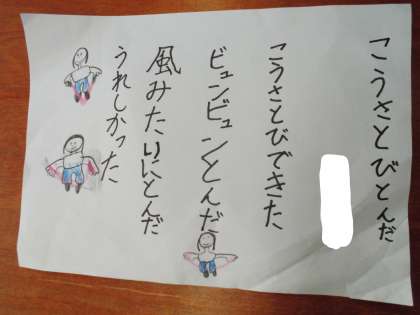 こうさとびとんだ
こうさとびできた
ビュンビュンとんだ
風みたいにとんだ
うれしかった